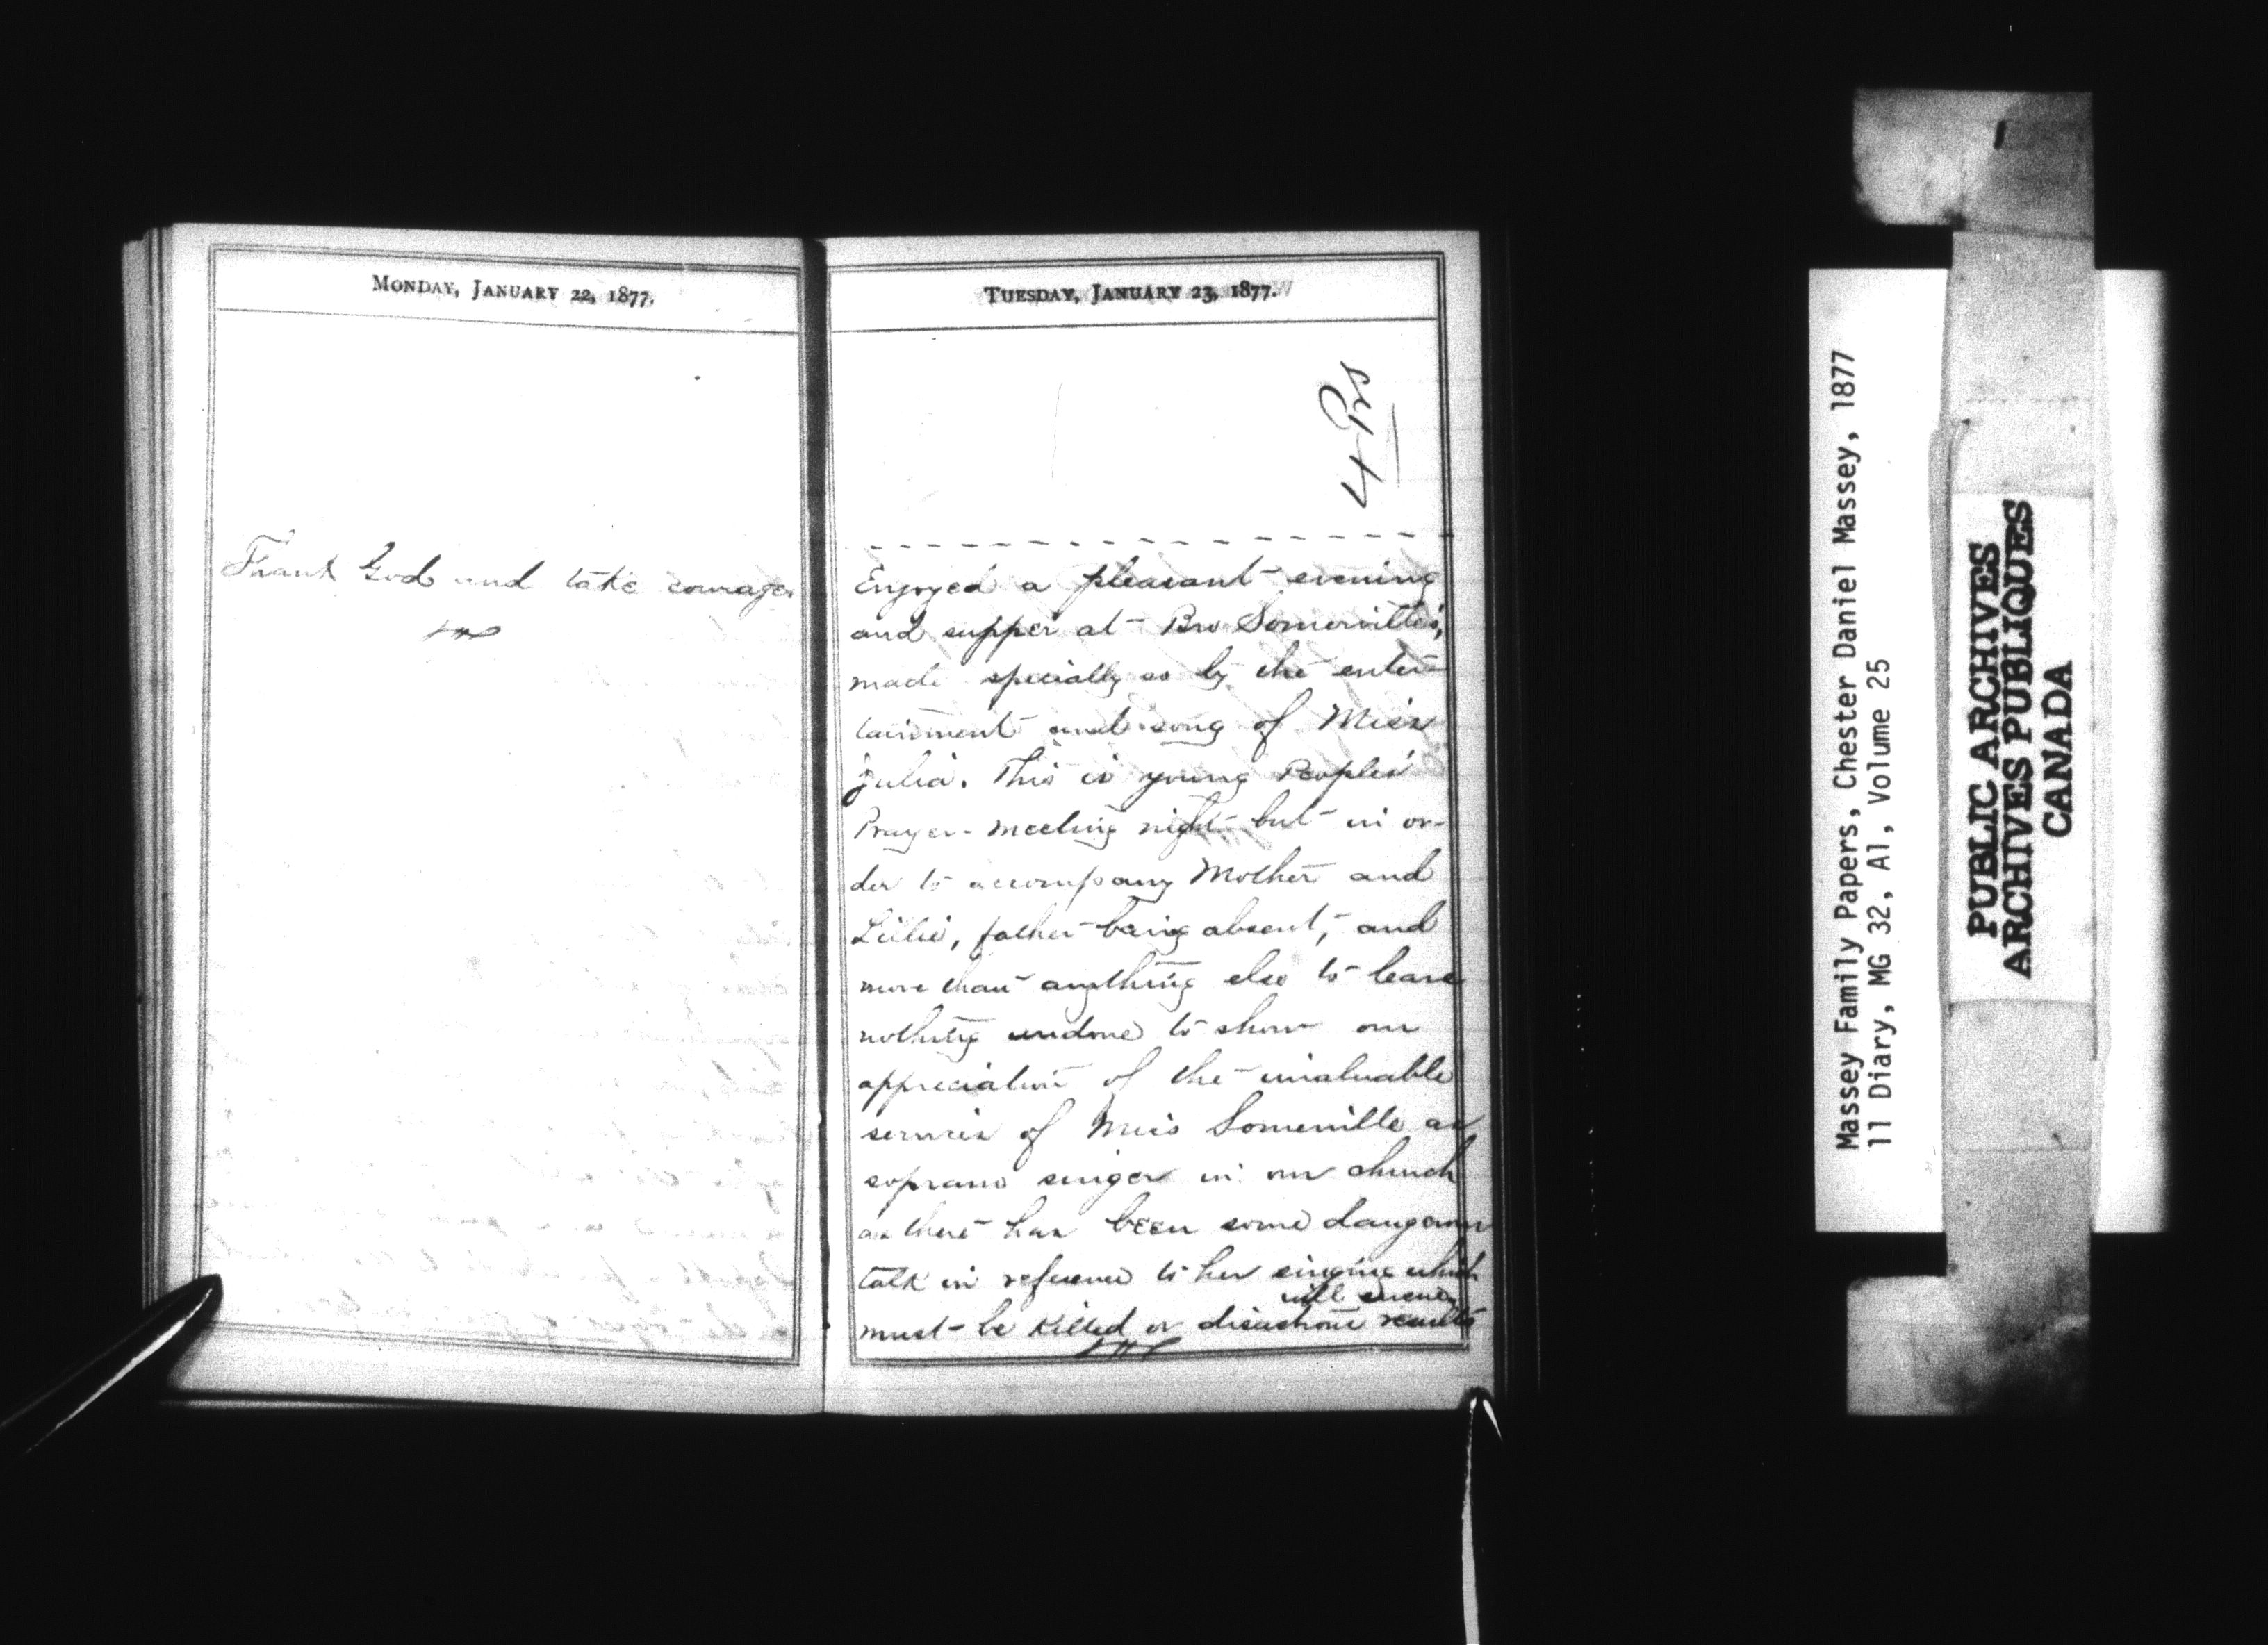 MONDAY, JANUARY 22, 1877.
Thank God and take courage.
TUESDAY, JANUARY 23, 1877.
4 Prs
Enjoyed a pleasant evening
and supper at Bro Somerville's,
made specially so by the enter-
tainment and song of Miss
Julia. This is young Peoples'
Prayer-meeting night but in or-
der to accompany Mother and
Lillie, father being absent, and
more than anything else to leave
nothing undone to show our
appreciation of the invaluable
services of Miss Somerville as
soprano singer in our church
as there has been some dangerous
talk in reference to her singing which
must be killed or disastrous results
will ensue.
Massey Family Papers, Chester Daniel Massey, 1877
11 Diary, MG 32, A1, Volume 25
PUBLIC ARCHIVES
ARCHIVES PUBLIQUES
CANADA